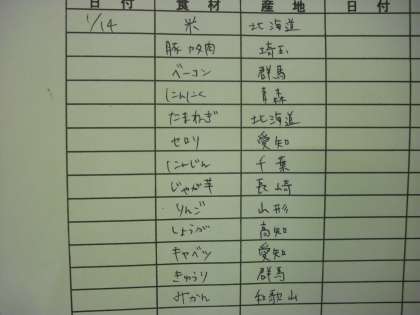 日 付 食 材 産 地 日 付
1/14 米 北海道
豚カタ肉 埼玉
ベーコン 群馬
にんにく 青森
たまねぎ 北海道
セロリ 愛知
にんじん 千葉
じゃが芋 長崎
りんご 山形
しょうが 高知
キャベツ 愛知
きゅうり 群馬
みかん 和歌山